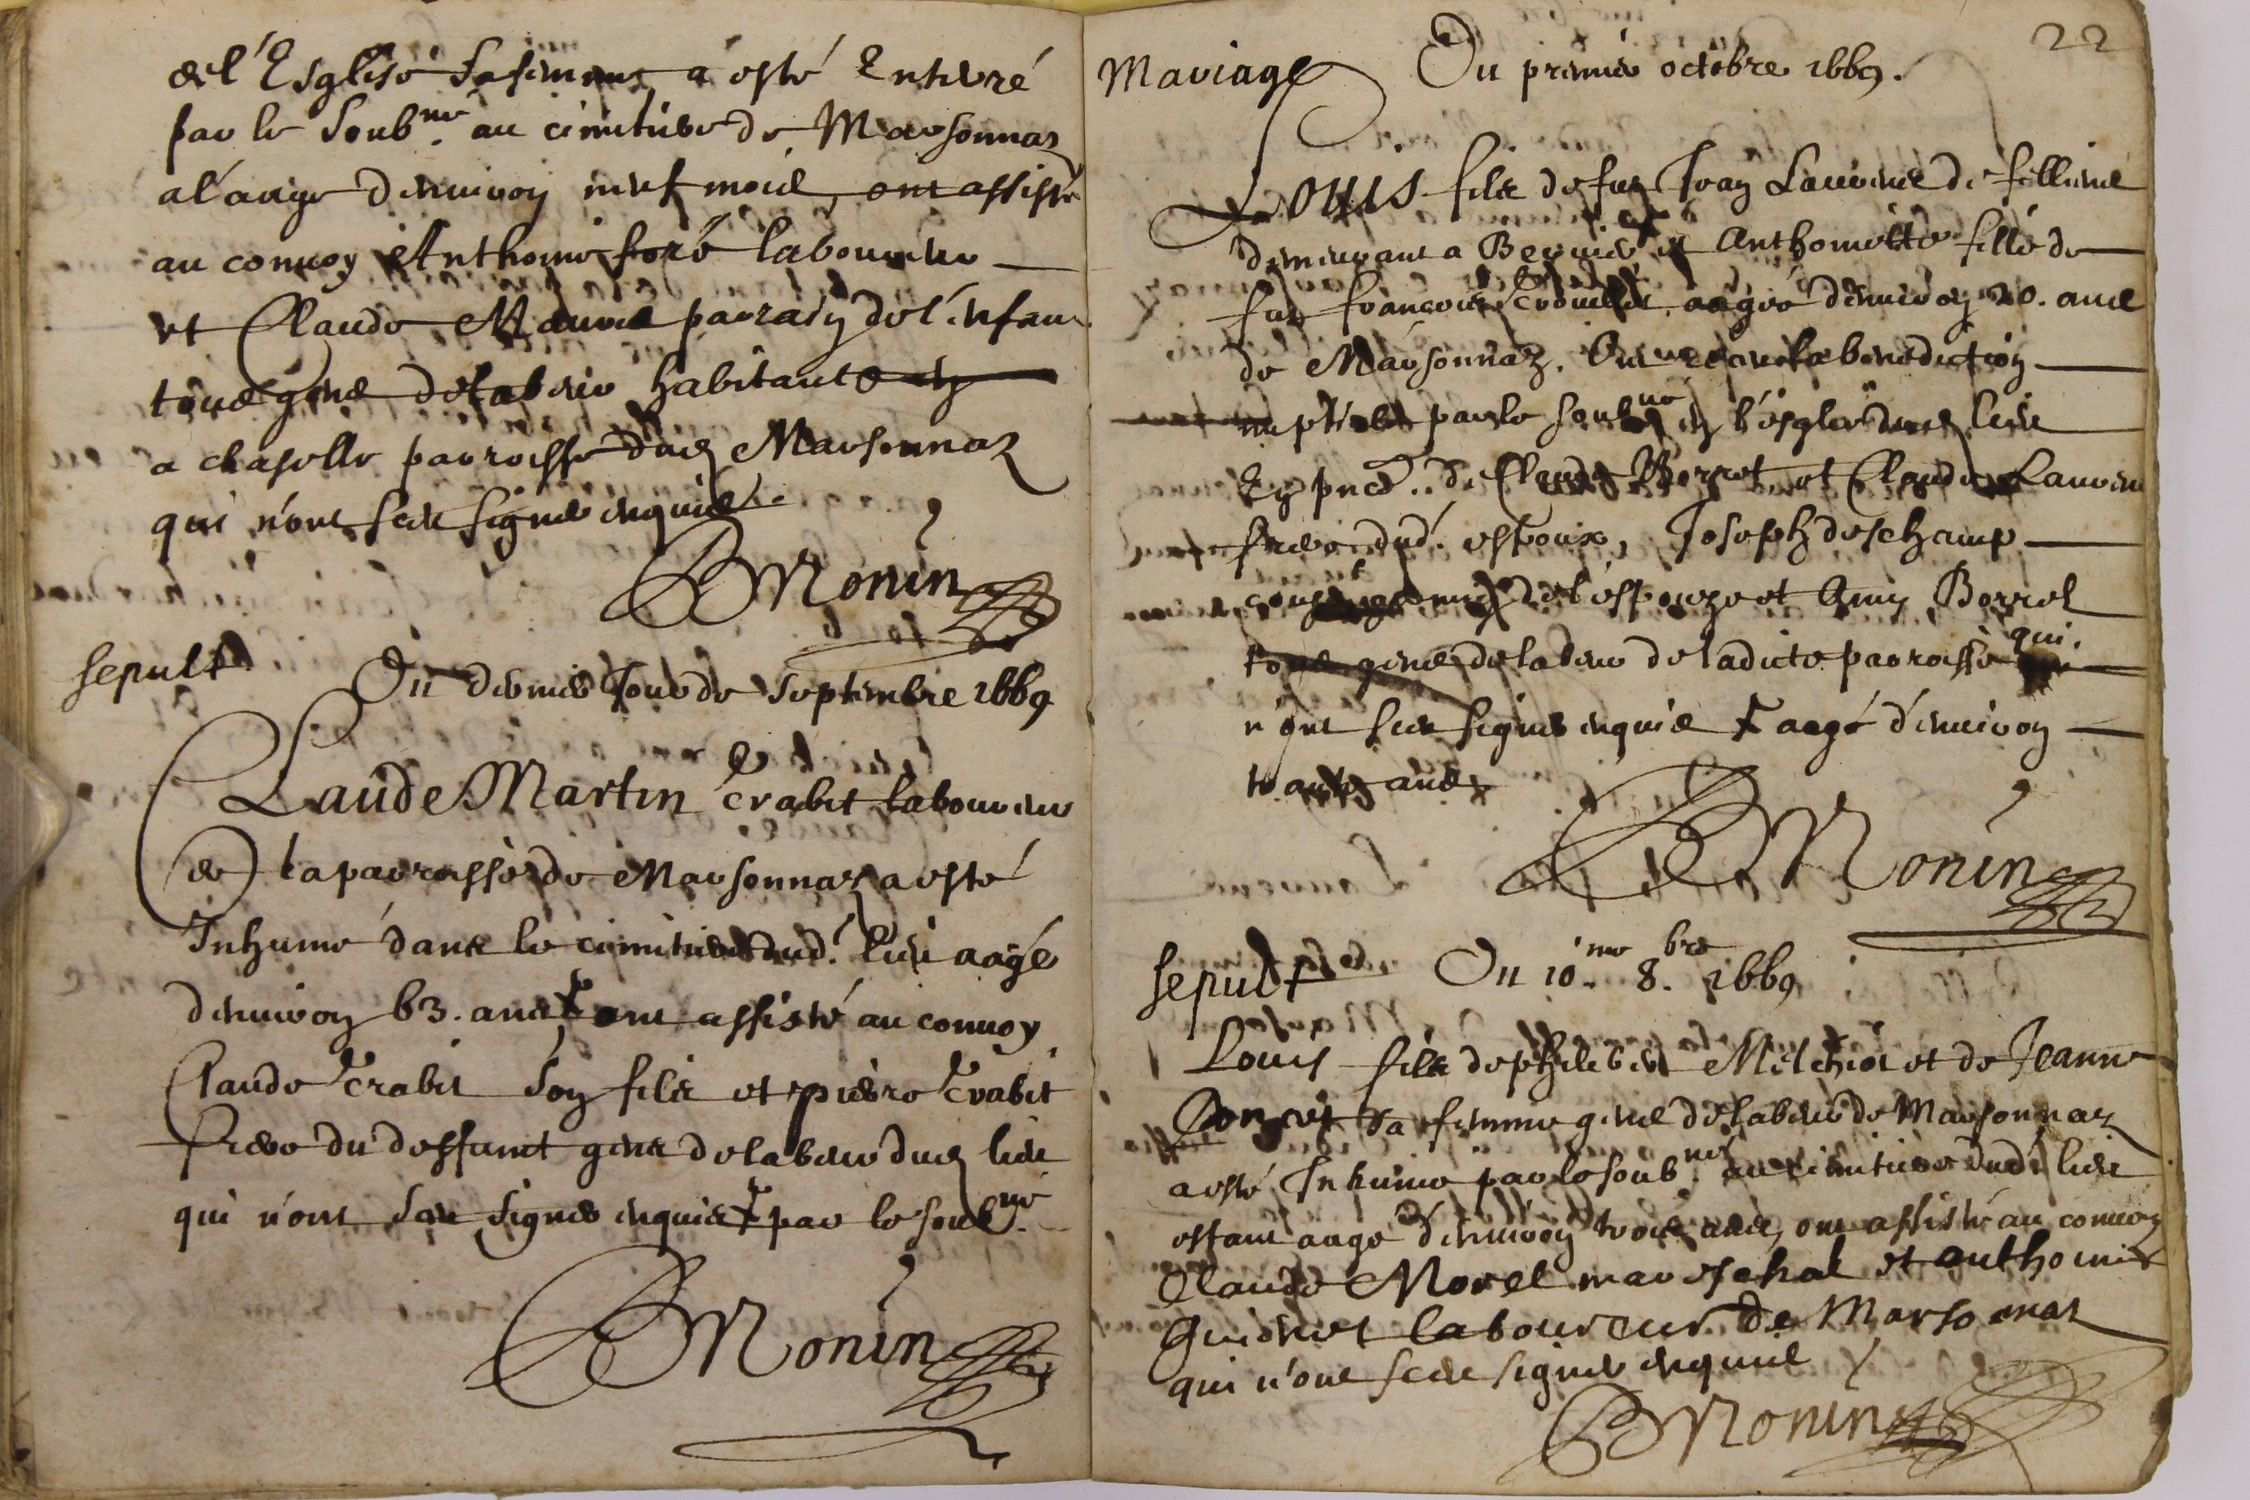 de l'Esglise sa femme a esté Enterré
par le soub.né au cimetiere de Marsonnaz
a l'aage d'environ neuf mois, ont assisté
au convoy Anthoine foré laboureur
et Claude Morel parrain de l'enfant
tous gens de labeur habitants
a chaselle parroisse dud Marsonnaz
qui n'ont sceu signer enquis
BMonin
sepult
Du dernier Jour de septembre 1669
Claude Martin Crabit laboureur
de la parroisse de Marsonnaz a esté
Inhumé dans le cimitiere dud. lieu aagé
d'environ 63. ans ont assisté au convoy
Claude Crabit son fils et pierre Crabit
frere du deffunct gens de labeur dud lieu
qui n'ont sceu signer enquis par le soub.né
BMonin
22
Mariage
Du premier octobre 1669.
Louis fils de fut Jean Laurens de
demeurant a et Anthoinette fille de
fut francois aagée d'environ 20. ans
de Marsonnaz. Ont receu la benediction
nuptiale par le soub.né en l'esglise dud lieu
En pnce. de Claude Borrel et Claude Laurens
frere dud. espoux, Joseph deschamp
de l'espouze et Borrel
tous gens de labeur de ladicte parroisse qui
n'ont sceu signer enquis aagé d'environ
trante ans
BMonin
sepult
Du 10.me 8.bre 1669
Louis fils de philibert Melchiot et de Jeanne
sa femme gens de labeur de Marsonnaz
a esté Inhumé par le soub.né au cimitiere dud. lieu
estant aagé d'environ trois ans, ont assisté au convoy
Claude Morel mareschal et anthoine
laboureur de Marsonnaz
qui n'ont sceu signer enquis
BMonin